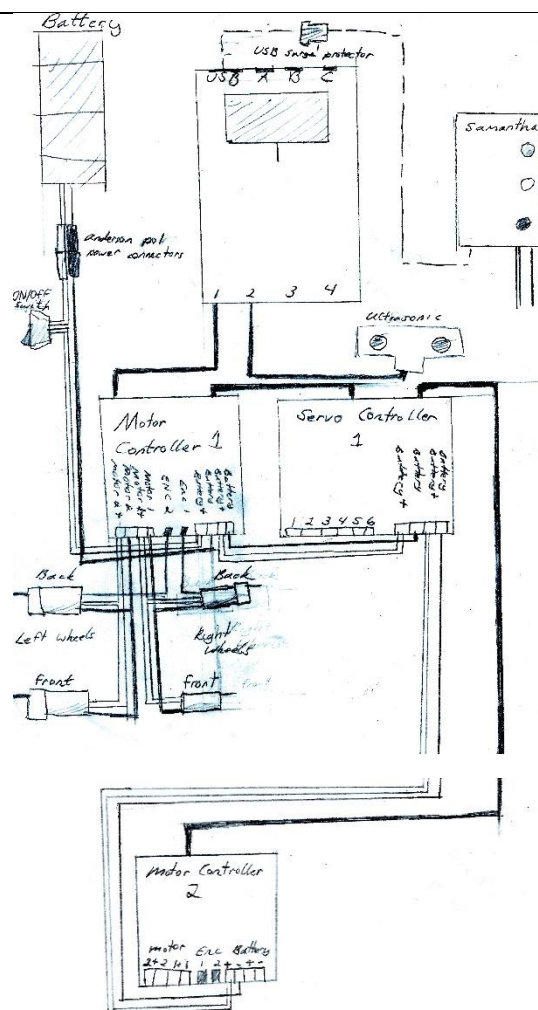 Battery
USB surge protector
USB A B C
Samantha
anderson pol
power connectors
ON/OFF
Switch
1 2 3 4
Ultrasonic
Motor
Controller 1
Servo Controller
1
Motor
ENC 2
Enc 1
Battery +
Battery
Battery +
Battery
Battery +
Battery
Battery +
Battery
1 2 3 4 5 6
Back
Back
Left wheels
Right
wheels
front
front
motor Controller
2
motor Enc Battery
2+2 1+1 1 2 + - + -